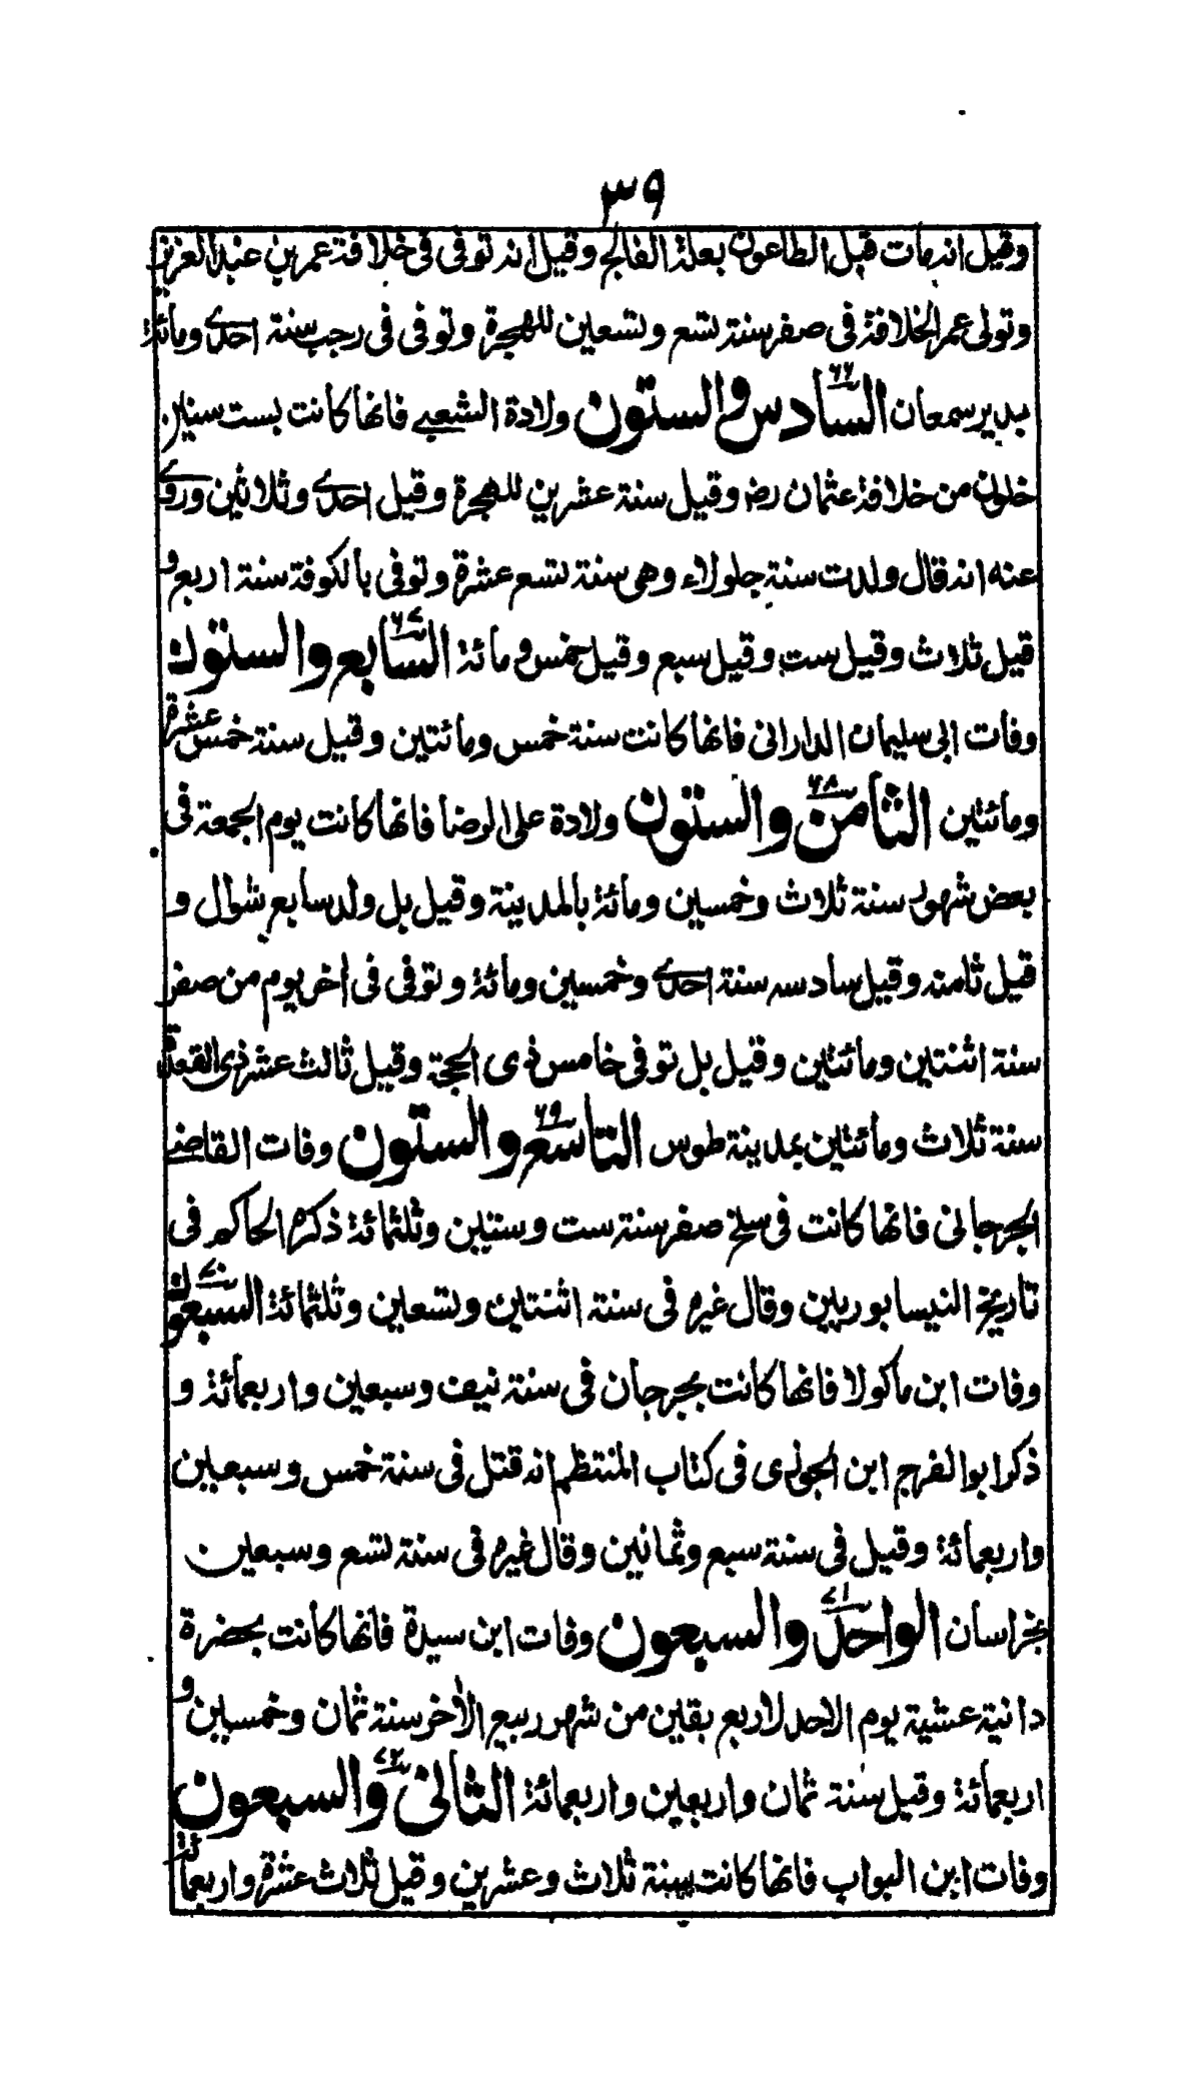 ٣٩
وقيل انه مات قبل الطاعون بعلة الفالج وقيل انه توفى فى خلافة عمر بن عبد العزيز
وتولى عمر الخلافة فى صفر سنة تسع وتسعين للهجرة وتوفى فى رجب سنة احدى ومائة
بدير سمعان السادس والستون ٦٦ ولادة الشعبى فانها كانت بست سنين
خلون من خلافة عثمان رضـ وقيل سنة عشرين للهجرة وقيل احدى وثلاثين وروى
عنه انه قال ولدت سنة جلولاء وهى سنة تسع عشرة وتوفى بالكوفة سنة اربع و
قيل ثلاث وقيل ست وقيل سبع وقيل خمس و مائة السابع والستون ٦٧
وفات ابى سليمان الدارانى فانها كانت سنة خمس ومائتين وقيل سنة خمس عشرة
ومائتين الثامن والستون ٦٨ ولادة على الرضا فانها كانت يوم الجمعة فى
بعض شهور سنة ثلاث وخمسين ومائة بالمدينة وقيل بل ولد سابع شوال و
قيل ثامنه وقيل سادسه سنة احدى وخمسين ومائة وتوفى فى اخر يوم من صفر
سنة اثنتين ومائتين وقيل بل توفى خامس ذى الحجة وقيل ثالث عشر ذى القعدة
سنة ثلاث ومائتين بمدينة طوس التاسع والستون ٦٩ وفات القاضى
الجرجانى فانها كانت فى سلخ صفر سنة ست وستين وثلثمائة ذكره الحاكم فى
تاريخ النيسابوريين وقال غيره فى سنة اثنتين وتسعين وثلثمائة السبعون ٧٠
وفات ابن ماكولا فانها كانت بجرجان فى سنة نيف وسبعين واربعمائة و
ذكر ابو الفرج ابن الجوزى فى كتاب المنتظم انه قتل فى سنة خمس وسبعين
واربعمائة وقيل فى سنة سبع وثمانين وقال غيره فى سنة تسع وسبعين
بخراسان الواحد والسبعون ٧١ وفات ابن سيدة فانها كانت بحضرة
دانية عشية يوم الاحد لاربع بقين من شهر ربيع الأخر سنة ثمان وخمسين و
اربعمائة وقيل سنة ثمان واربعين واربعمائة الثانى والسبعون ٧٢
وفات ابن البواب فانها كانت سنة ثلاث وعشرين وقيل ثلاث عشرة واربعمائة